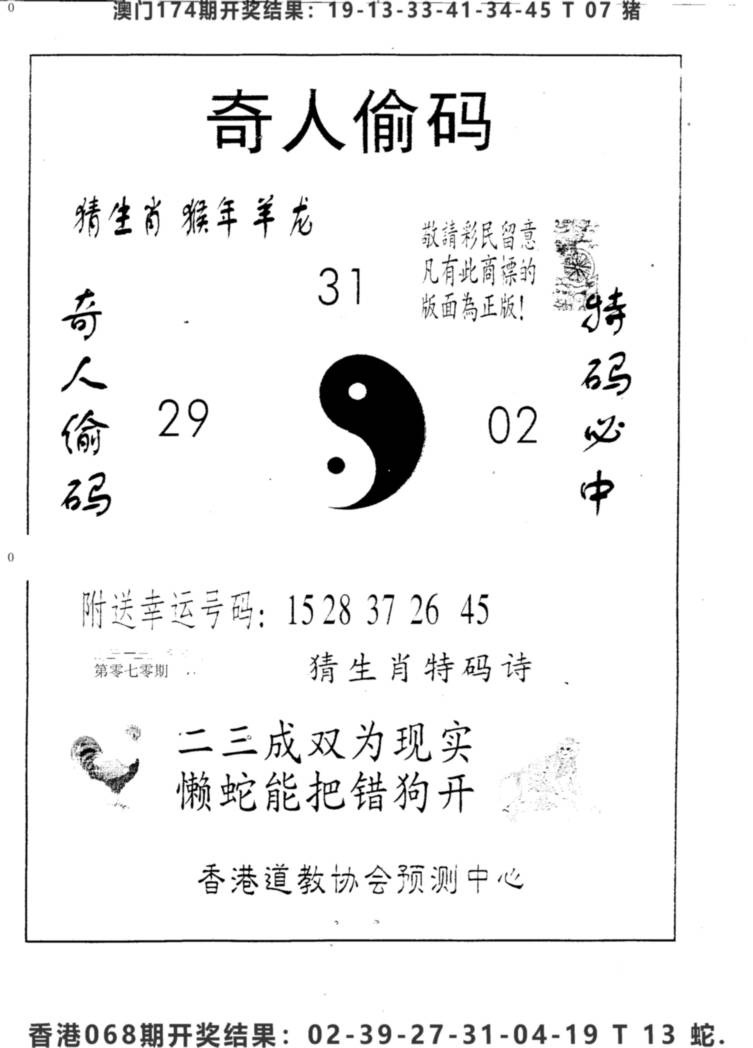 澳门174期开奖结果：19-13-33-41-34-45 T 07 猪
0
奇人偷码
猜生肖 猴年羊龙
敬請彩民留意
凡有此商標的
版面為正版！
31
奇人偷码
特码必中
29
02
0
附送幸运号码：15 28 37 26 45
第零七零期
猜生肖特码诗
二三成双为现实
懒蛇能把错狗开
香港道教协会预测中心
香港068期开奖结果：02-39-27-31-04-19 T 13 蛇.